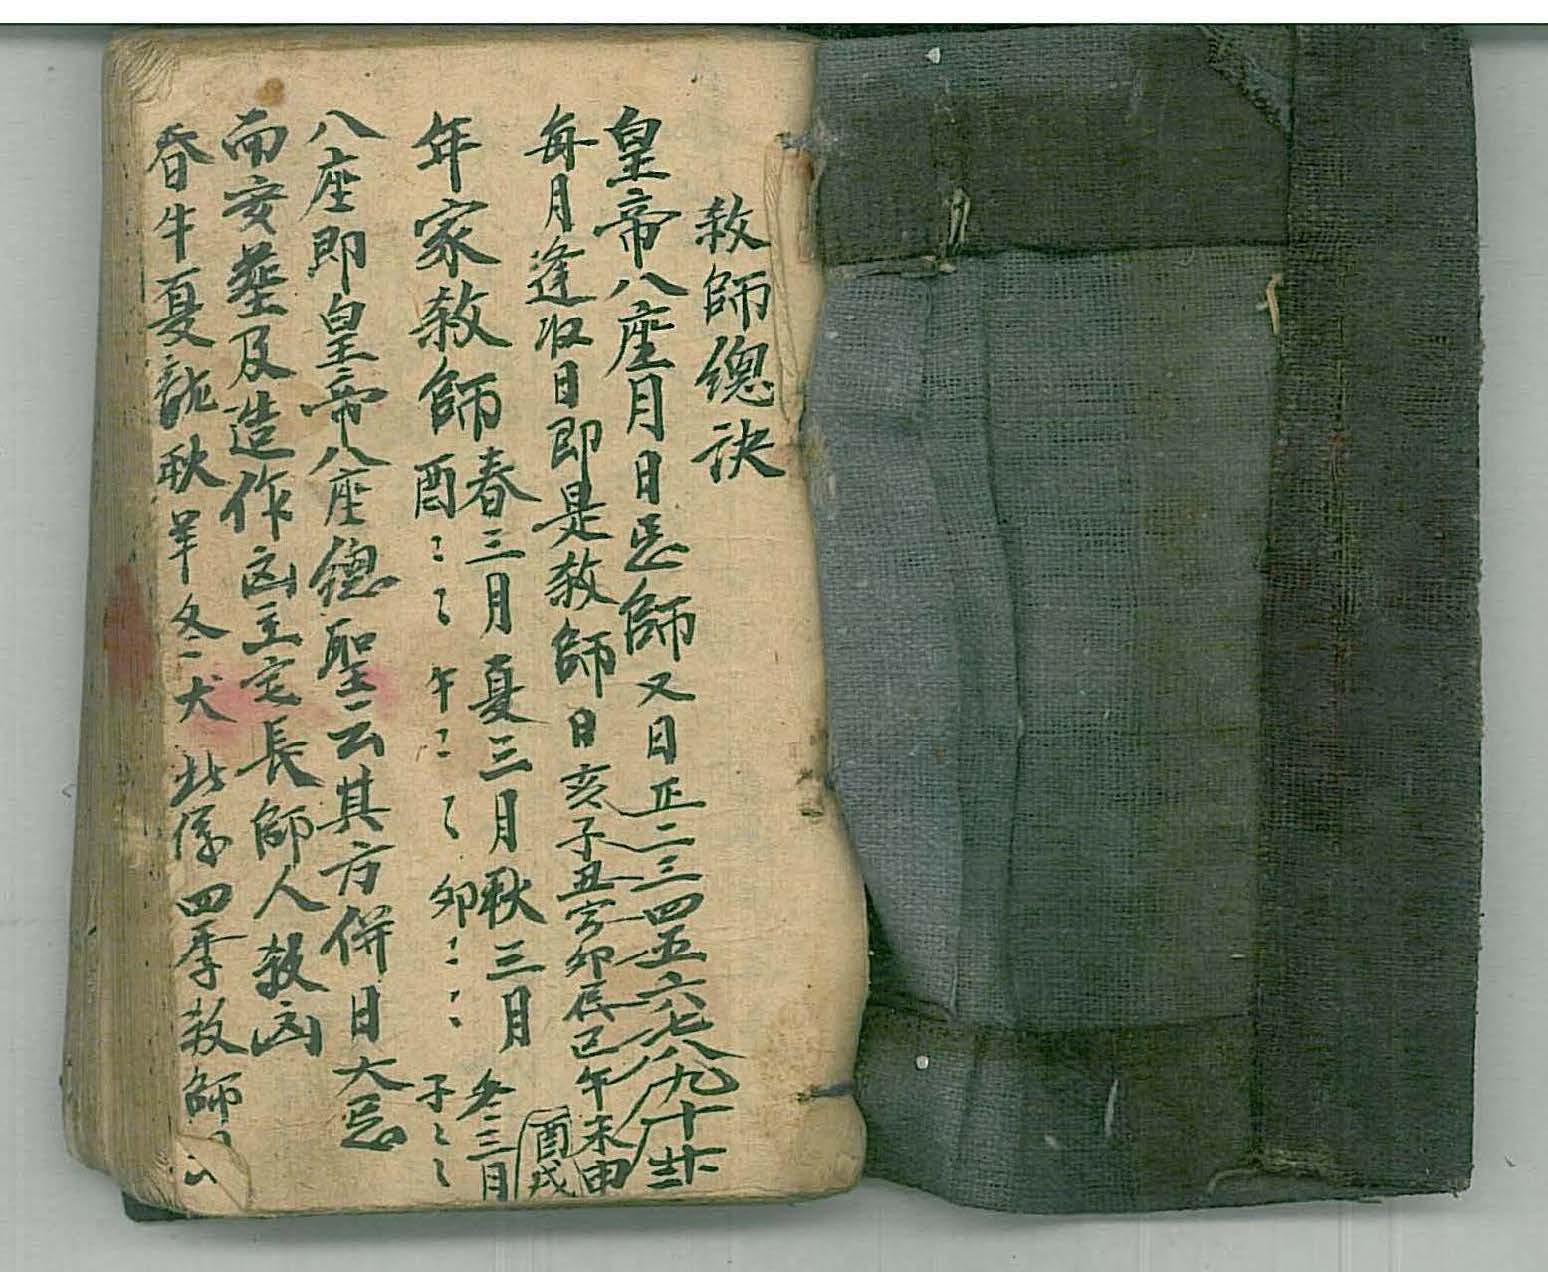 敎師總訣
皇帝八座月日忌師又日正二三四五六七八九十
每月逢收日即是敎師日亥子丑寅卯辰巳午未申酉戌
年家敎師春三月夏三月秋三月冬三月
酉 午 卯 子
八座即皇帝八座總聖云其方併日大忌
而安葬及造作凶主宅長師人敎凶
春牛夏龍秋羊冬犬此係四季敎師